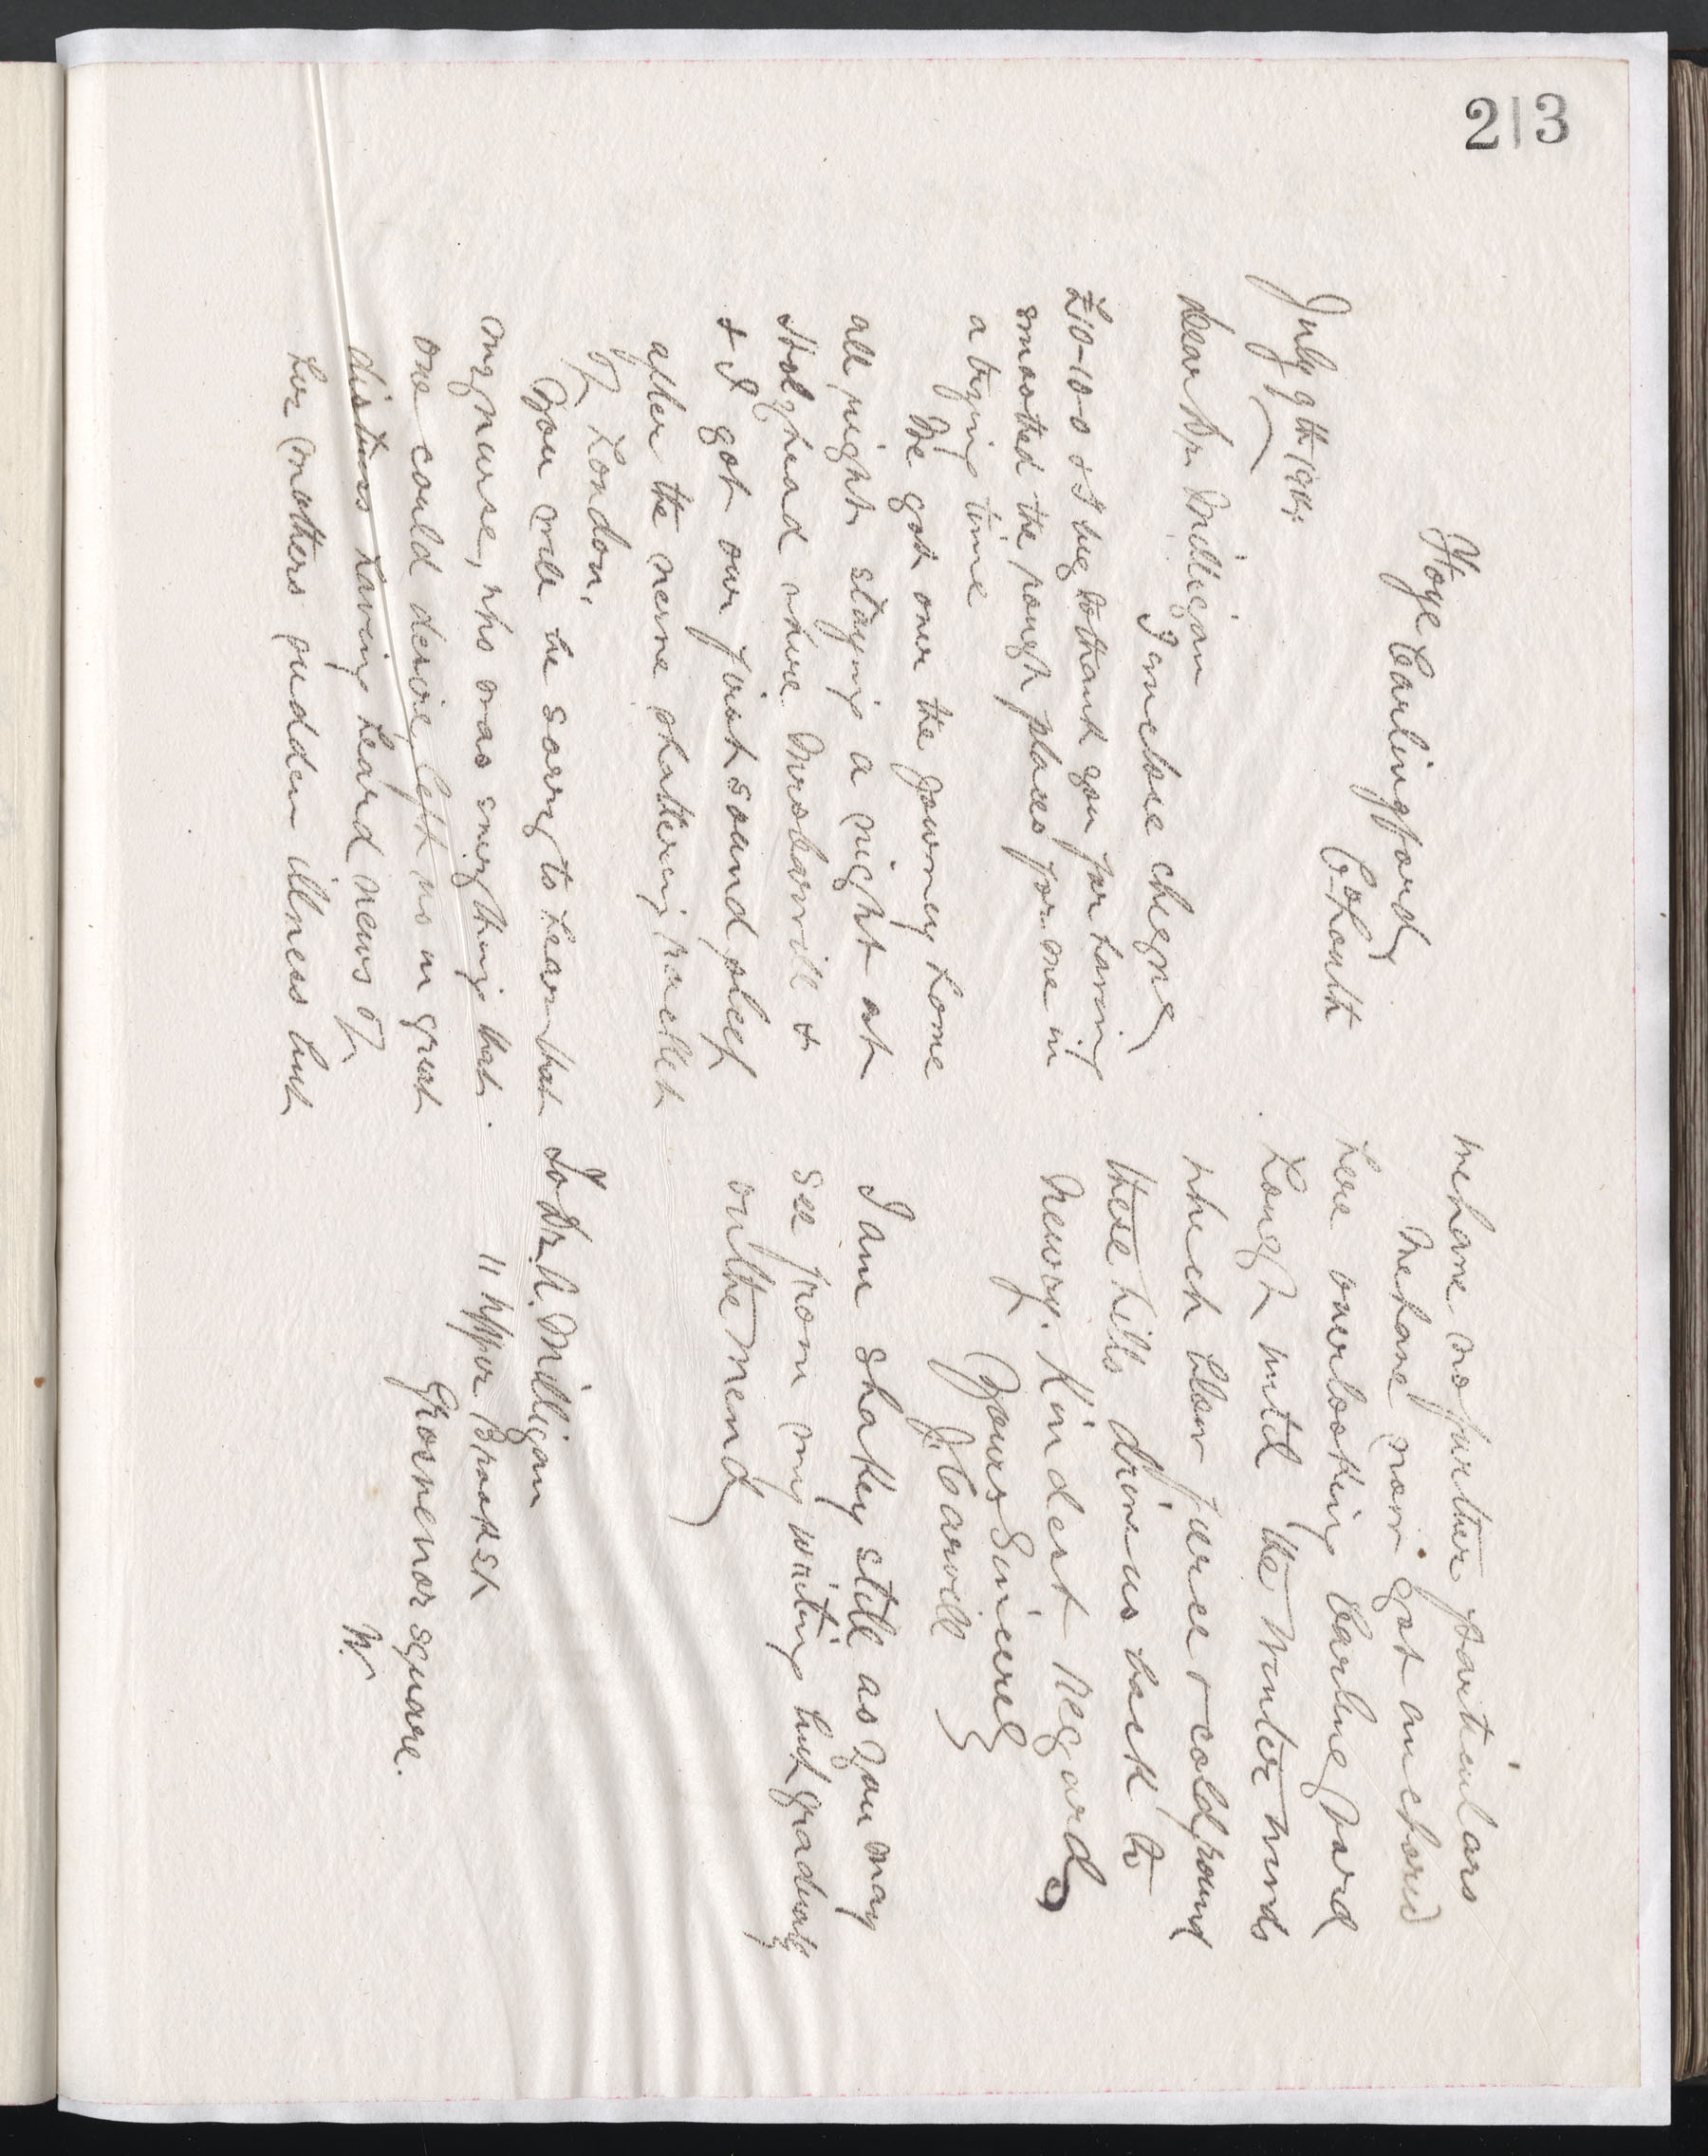 213
Ffoye Carlingford
Co Louth
July 9th 1901.
Dear Dr. Milligan
I enclose cheque
£10-10-0 & I beg to thank you for having
smoothed the rough places for me in
a trying time
We got over the journey home
all right staying a night at
Holyhead where Mrs Carvill &
& I got our first sound sleep
after the nerve shattering racket
of London.
You will be sorry to hear that
my nurse, who was everything that
one could desire, left us in great
distress having heard news of
her mothers sudden illness but
we have no further particulars
We have now got anchored
here overlooking Carlingford
Lough until the Winter winds
which blow fierce & cold round
these hills drive us back to
Newry. Kindest regards
Yours Sincerely
J. Carvill
I am shakey still as you may
see from my writing but gradually
on the mend
To Dr. A. Milligan
11 Upper Brook St
Grosvenor square.
W.